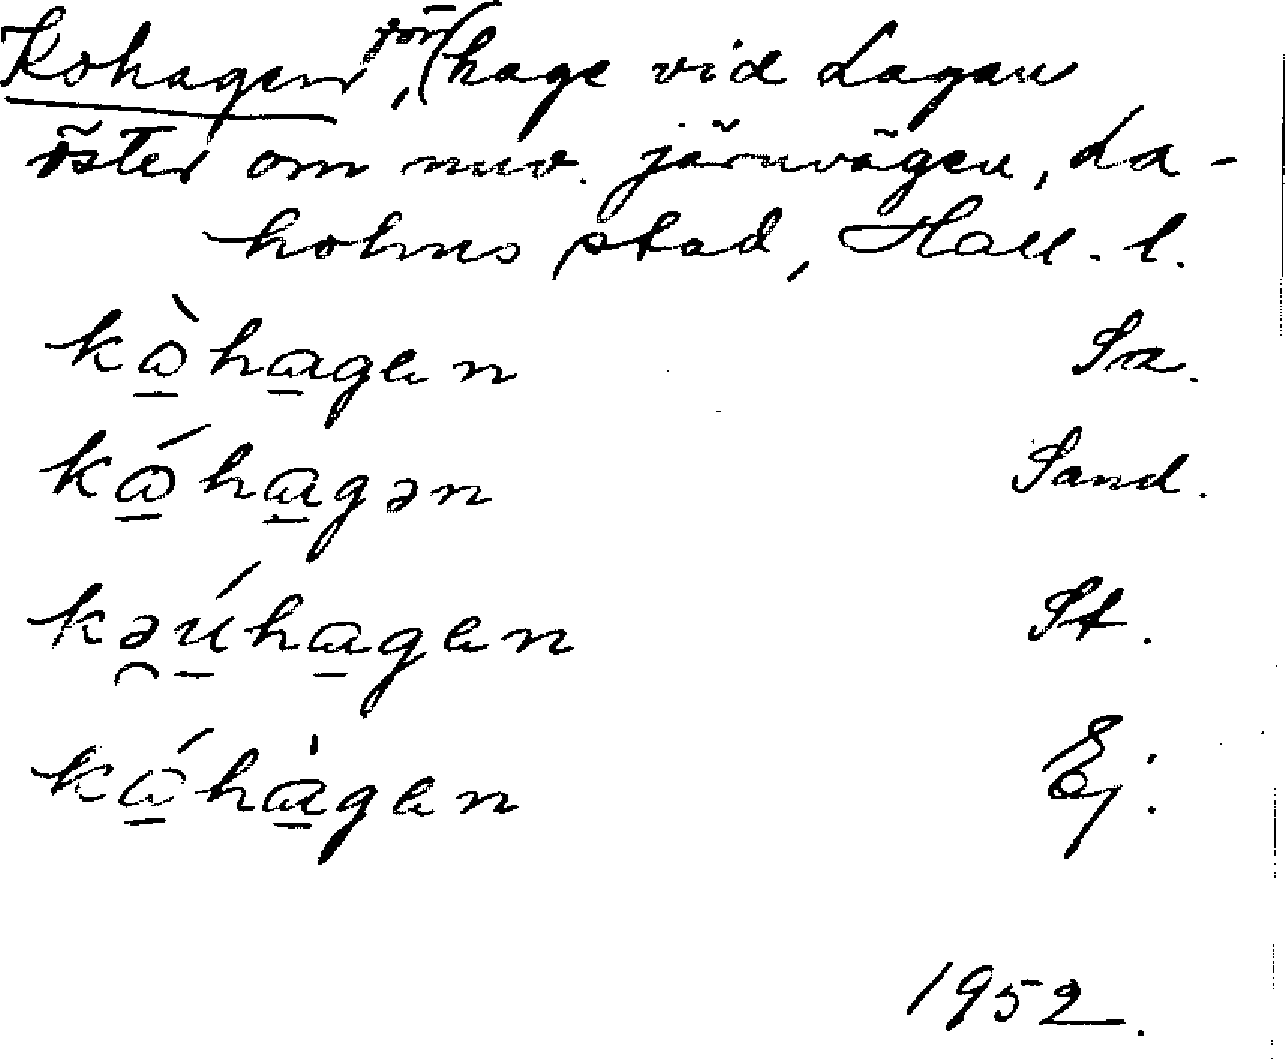 Kohagen, förr hage vid Lagan
öster om nuv. järnvägen, La-
holms stad, Hall. l.
kɷ̠̀hɑ̠gen Sra.
kɷ̠́hɑ̠gən Sand.
kə̯ú̠hɑ̠gen St.
kɷ̠́hɑ̠̀gen Ej.
1952.